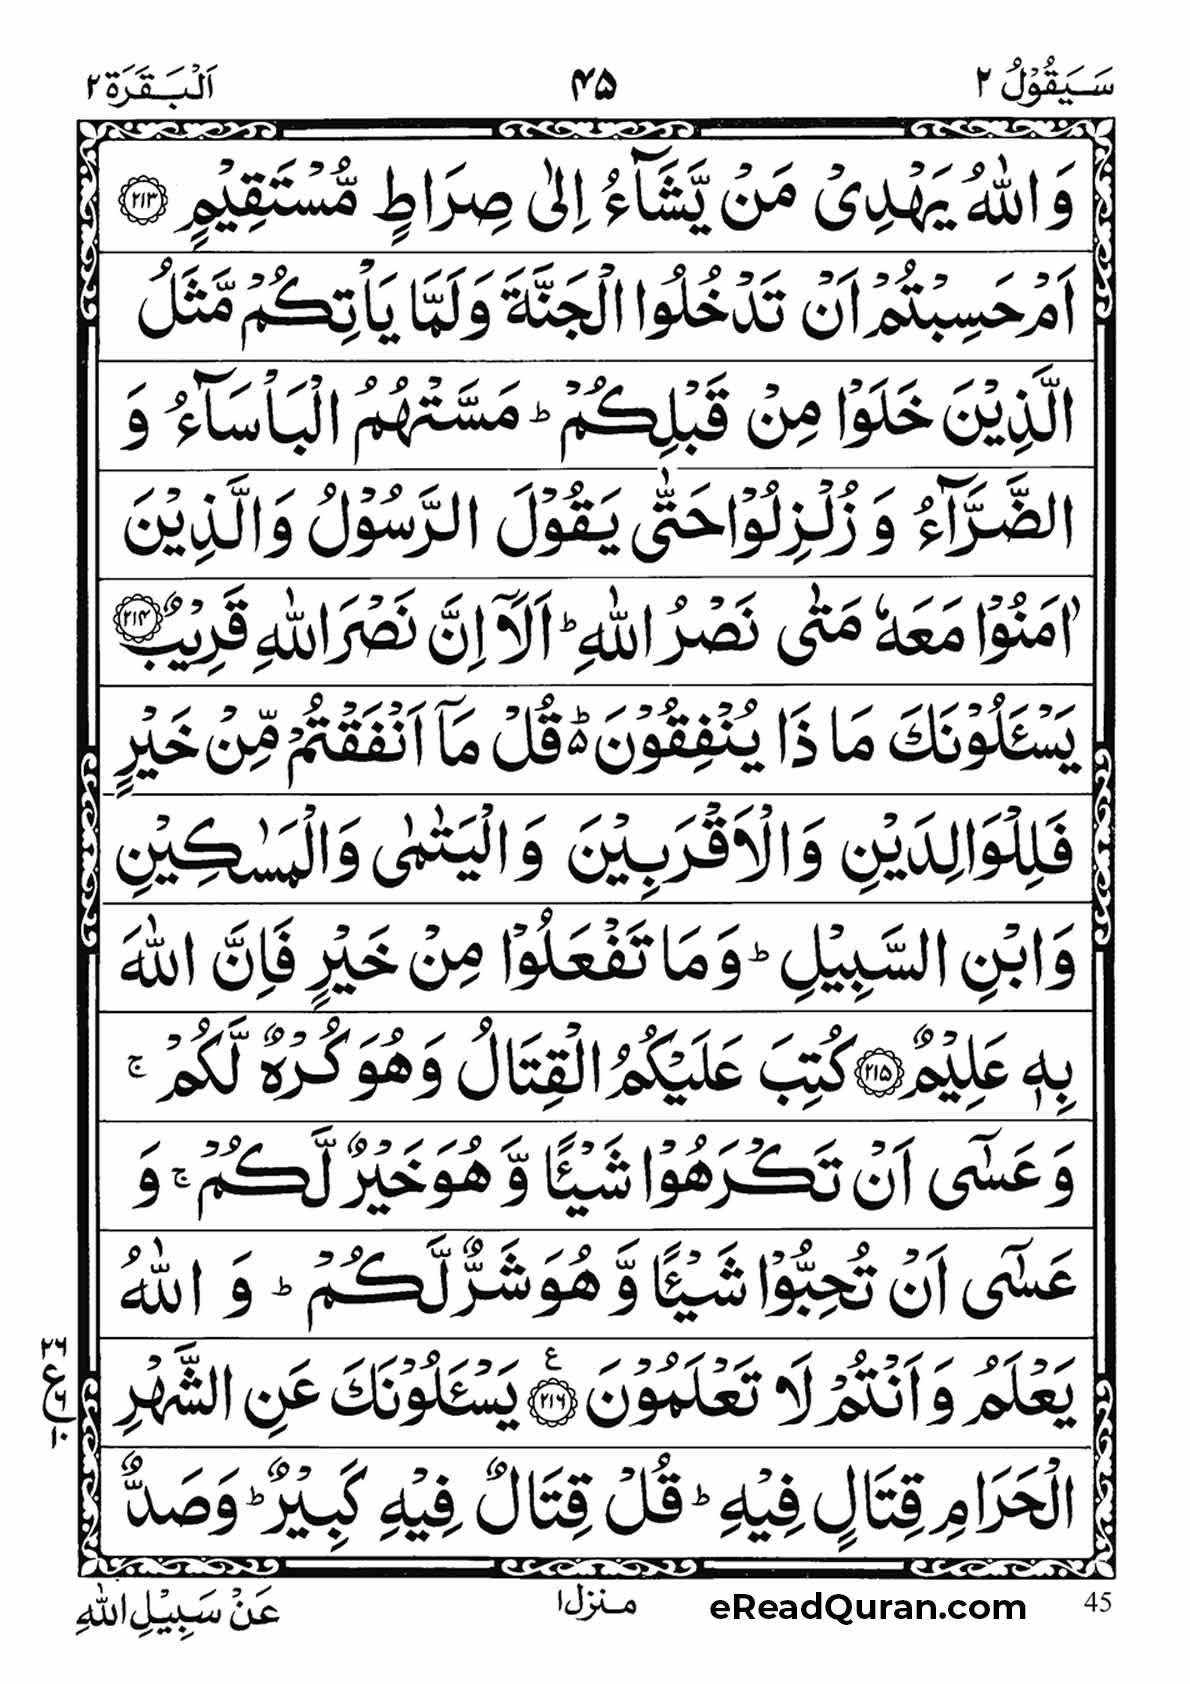 سَيَقُوۡلُ ٢
٤٥
اَلۡبَقَرَة ٢
وَاللّٰهُ يَهۡدِىۡ مَنۡ يَّشَآءُ اِلٰى صِرَاطٍ مُّسۡتَقِيۡمٍ ﴿٢١٣﴾
اَمۡ حَسِبۡتُمۡ اَنۡ تَدۡخُلُوا الۡجَنَّةَ وَلَمَّا يَاۡتِكُمۡ مَّثَلُ
الَّذِيۡنَ خَلَوۡا مِنۡ قَبۡلِكُمۡؕ مَسَّتۡهُمُ الۡبَاۡسَآءُ وَ
الضَّرَّآءُ وَ زُلۡزِلُوۡا حَتّٰى يَقُوۡلَ الرَّسُوۡلُ وَالَّذِيۡنَ
اٰمَنُوۡا مَعَهٗ مَتٰى نَصۡرُ اللّٰهِؕ اَلَاۤ اِنَّ نَصۡرَ اللّٰهِ قَرِيۡبٌ ﴿٢١٤﴾
يَسۡـَٔلُوۡنَكَ مَا ذَا يُنۡفِقُوۡنَ ؕ۵ قُلۡ مَاۤ اَنۡفَقۡتُمۡ مِّنۡ خَيۡرٍ
فَلِلۡوَالِدَيۡنِ وَالۡاَقۡرَبِيۡنَ وَالۡيَتٰمٰى وَالۡمَسٰكِيۡنِ
وَابۡنِ السَّبِيۡلِؕ وَمَا تَفۡعَلُوۡا مِنۡ خَيۡرٍ فَاِنَّ اللّٰهَ
بِهٖ عَلِيۡمٌ ﴿٢١٥﴾ كُتِبَ عَلَيۡكُمُ الۡقِتَالُ وَهُوَ كُرۡهٌ لَّكُمۡۚ
وَعَسٰٓى اَنۡ تَكۡرَهُوۡا شَيۡـًٔا وَّهُوَ خَيۡرٌ لَّكُمۡۚ وَ
عَسٰٓى اَنۡ تُحِبُّوۡا شَيۡـًٔا وَّهُوَ شَرٌّ لَّكُمۡؕ وَ اللّٰهُ
يَعۡلَمُ وَاَنۡتُمۡ لَا تَعۡلَمُوۡنَ ﴿٢١٦﴾ ع يَسۡـَٔلُوۡنَكَ عَنِ الشَّهۡرِ
٢٦
ع
٦
١٠
الۡحَرَامِ قِتَالٍ فِيۡهِؕ قُلۡ قِتَالٌ فِيۡهِ كَبِيۡرٌؕ وَصَدٌّ
45
eReadQuran.com
منزل ١
عَنۡ سَبِيۡلِ اللّٰهِ